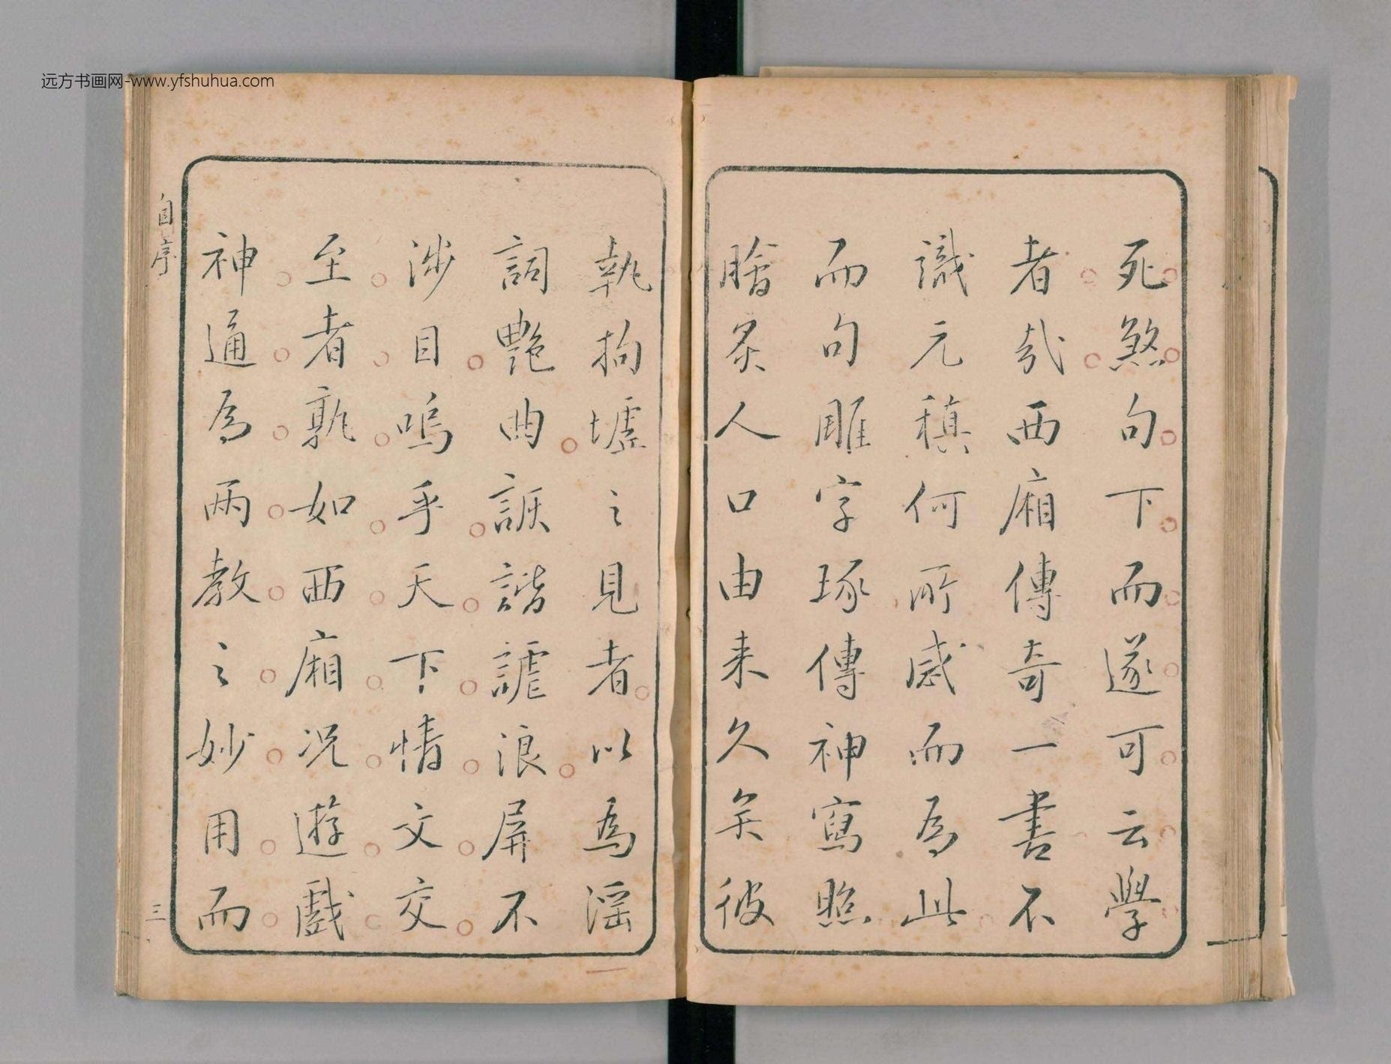 远方书画网-www.yfshuhua.com
死煞句下而遂可云學
者哉西廂傳奇一書不
識元稹何所感而為此
而句雕字琢傳神寫照
膾炙人口由来久矣彼
執拘墟之見者以為淫
詞艷曲詼諧謔浪屏不
涉目嗚乎天下情文交
至者孰如西廂况遊戲
神通為兩教之妙用而
自序
三